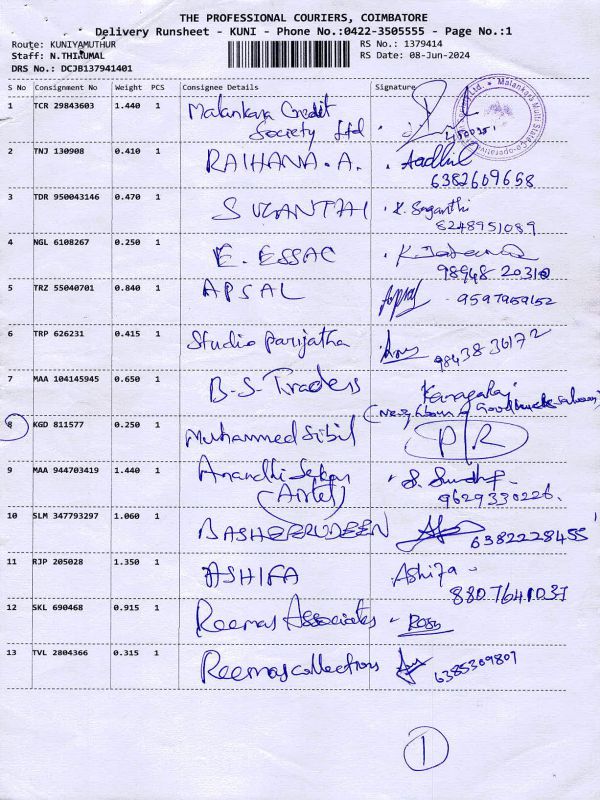 THE PROFESSIONAL COURIERS, COIMBATORE
Delivery Runsheet - KUNI - Phone No.:0422-3505555 - Page No.:1
Route: KUNIYAMUTHUR
RS No.: 1379414
Staff: N.THIRUMAL
RS Date: 08-Jun-2024
DRS No.: DCJB137941401
S No Consignment No Weight PCS Consignee Details Signature
1 TCR 29843603 1.440 1 Malankara Credit
Society Ltd
2 TNJ 130908 0.410 1 RAIHANA.A. Aadhil
6382609658
3 TDR 950043146 0.470 1 SUGANTHI
8248951089
4 NGL 6108267 0.250 1 E. ESSAC
98948 20310
5 TRZ 55040701 0.840 1 APSAL Apsal 9597959152
6 TRP 626231 0.415 1 Studio Parijatha
98438 36172
7 MAA 104145945 0.650 1 B-S-Traders
8 KGD 811577 0.250 1 Muhammed Sibil P/R
9 MAA 944703419 1.440 1 Anandhi Sekar
(Airtel) 9629330226.
10 SLM 347793297 1.060 1 BASHEERUDEEN 6382228455
11 RJP 205028 1.350 1 ASHIFA Ashifa
8807641037
12 SKL 690468 0.915 1 Reemas Associates
13 TVL 2804366 0.315 1 Reemas collections 6385309807
1